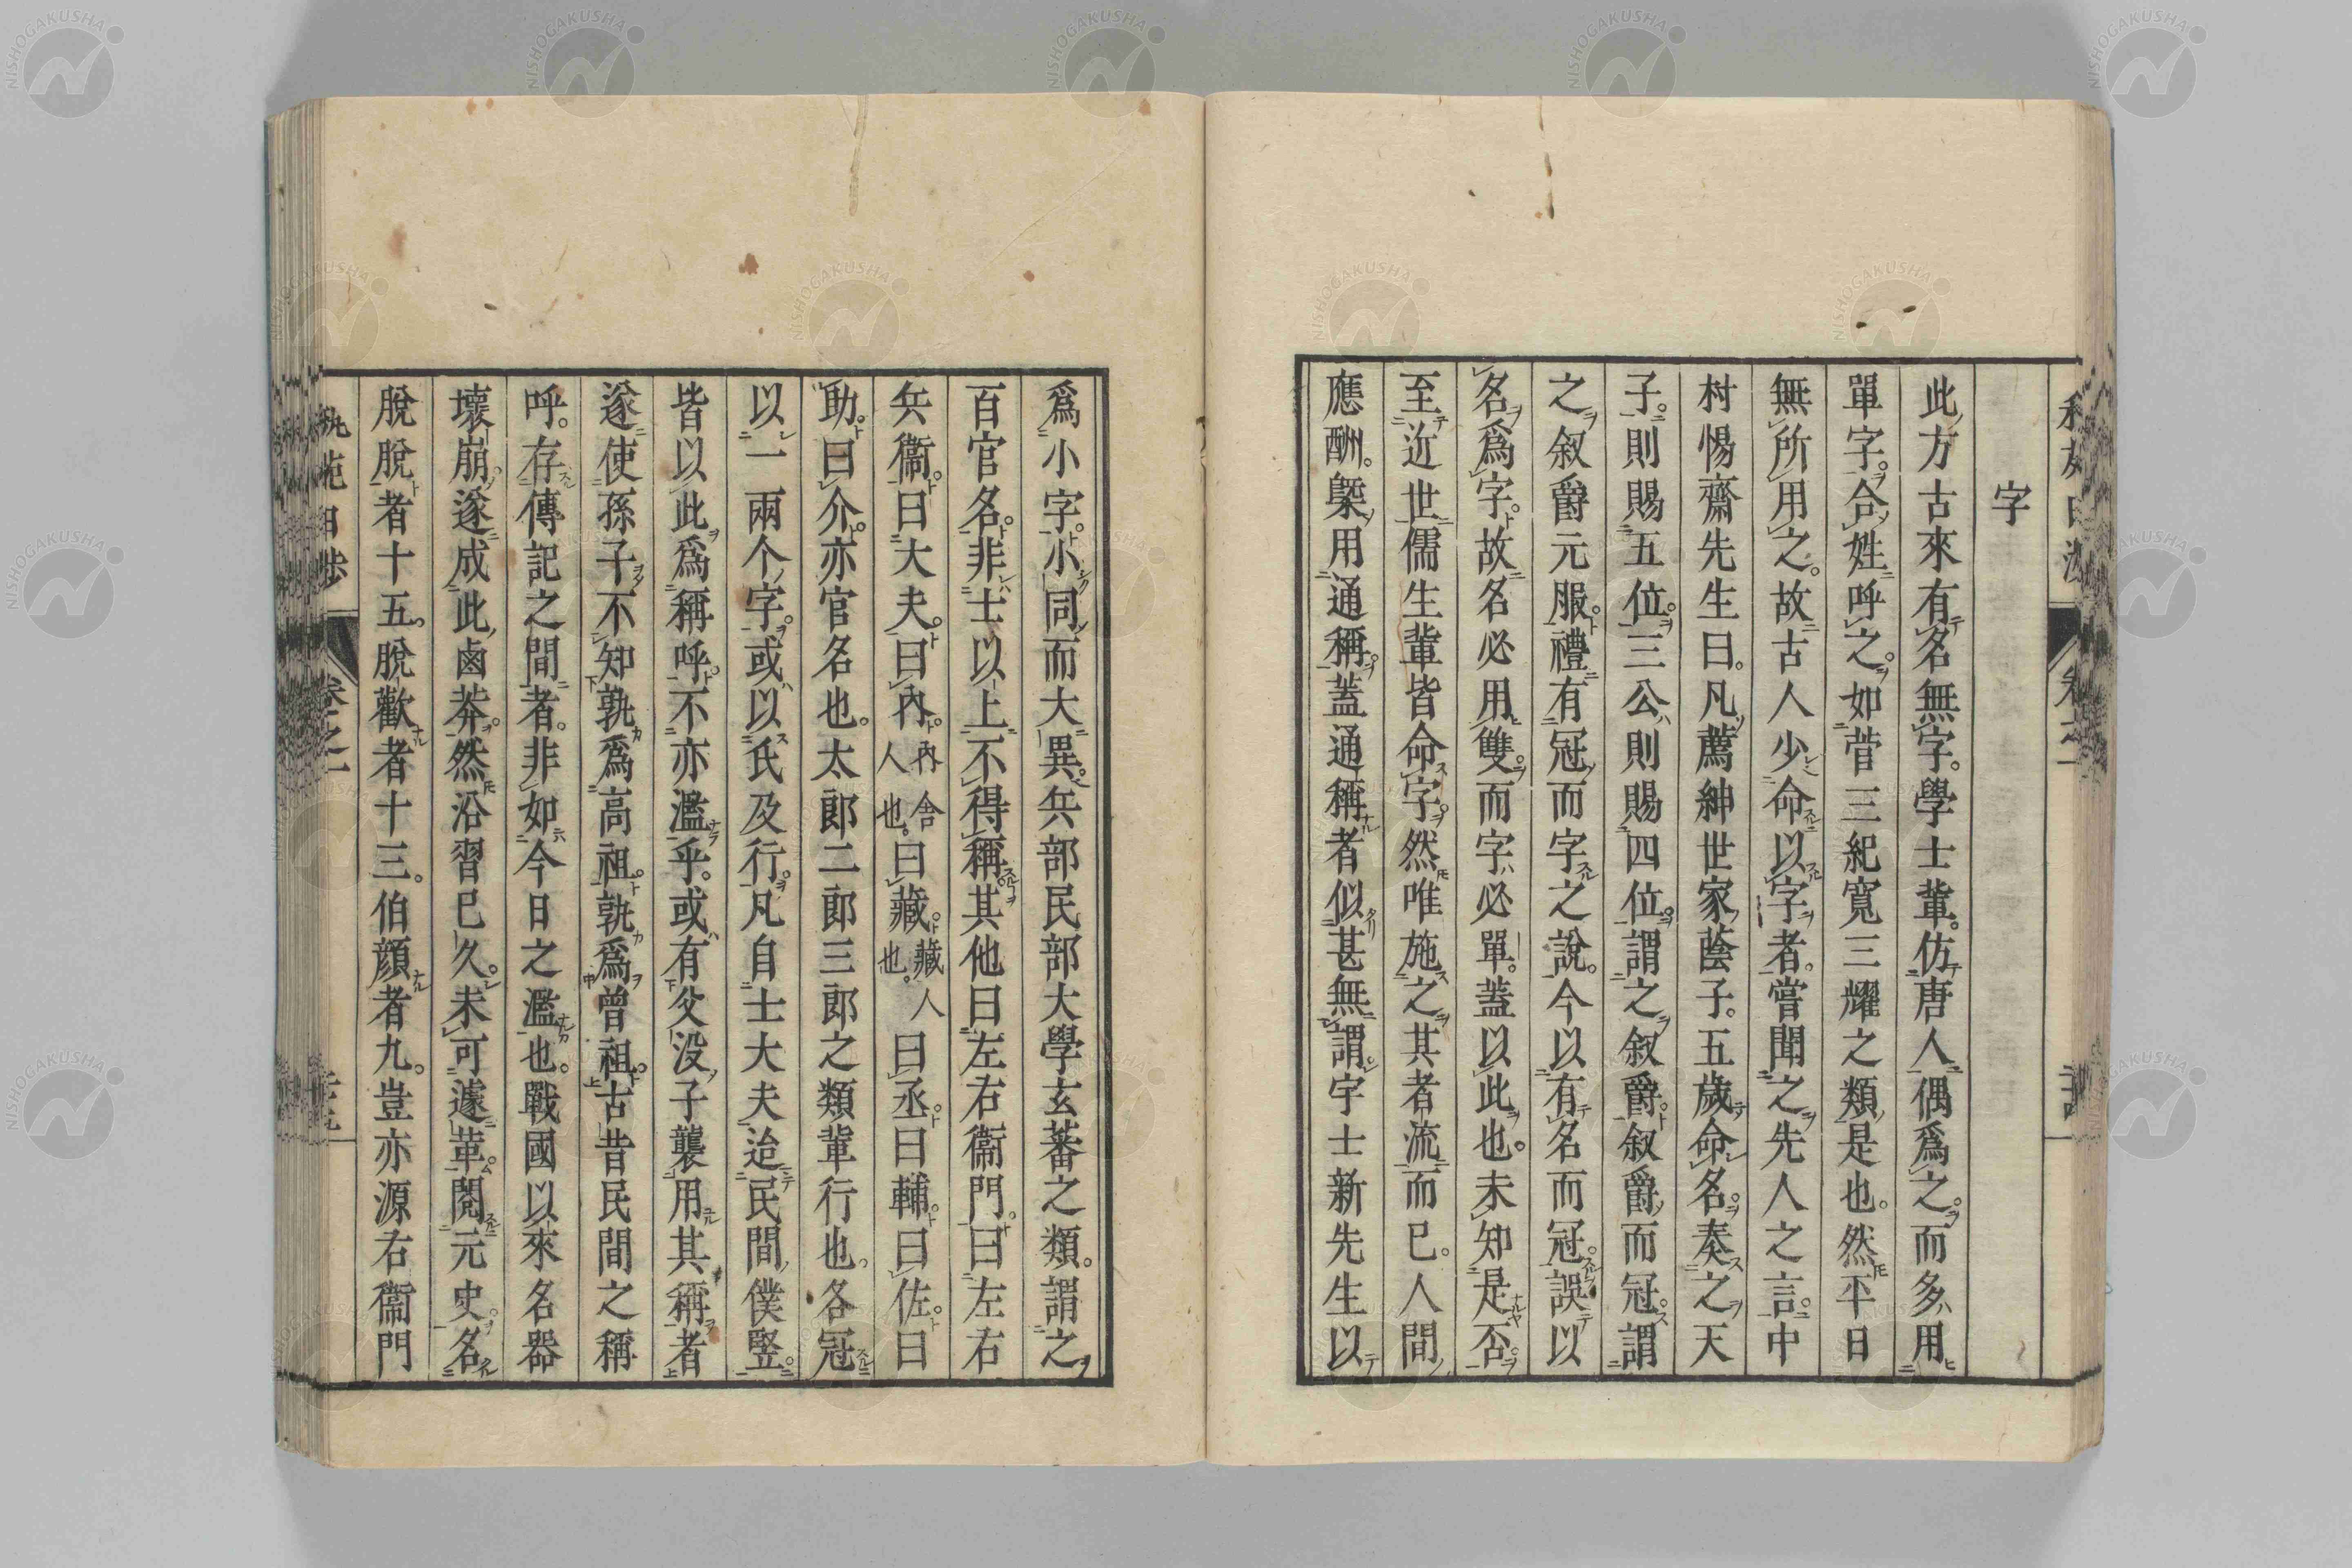 字
此方古來有名無字。學士輩。仿唐人偶爲之。而多用
單字。合姓呼之。如菅三紀寬三耀之類是也。然平日
無所用之。故古人少命以字者。嘗聞之先人之言。中
村惕齋先生曰。凡薦紳世家蔭子。五歲命名。奏之天
子。則賜五位。三公則賜四位。謂之叙爵。叙爵而冠。謂
之叙爵元服。禮有冠而字之說。今以有名而冠。誤以
名爲字。故名必用雙。而字必單。蓋以此也。未知是否。
至近世儒生輩皆命字。然唯施之其者流而已。人間
應酬。槩用通稱。蓋通稱者似甚無謂。宇士新先生以
爲小字。小同而大異。兵部民部大學玄蕃之類。謂之
百官名。非士以上不得稱。其他曰左右衞門。曰左右
兵衞。曰大夫。曰內。內舍人也。曰藏。藏人也。曰丞。曰輔。曰佐。曰
助。曰介。亦官名也。太郎二郎三郎之類輩行也。各冠
以一兩个字。或以氏及行。凡自士大夫迨民間僕豎。
皆以此爲稱呼。不亦濫乎。或有父没子襲用其稱者
遂使孫子不知孰爲高祖。孰爲曾祖。古昔民間之稱
呼。存傳記之間者。非如今日之濫也。戰國以來名器
壞崩。遂成此鹵莽。然沿習已久。未可遽革。閱元史。名
脫脫者十五。脫歡者十三。伯顏者九。豈亦源右衞門
卷之一
卷之一